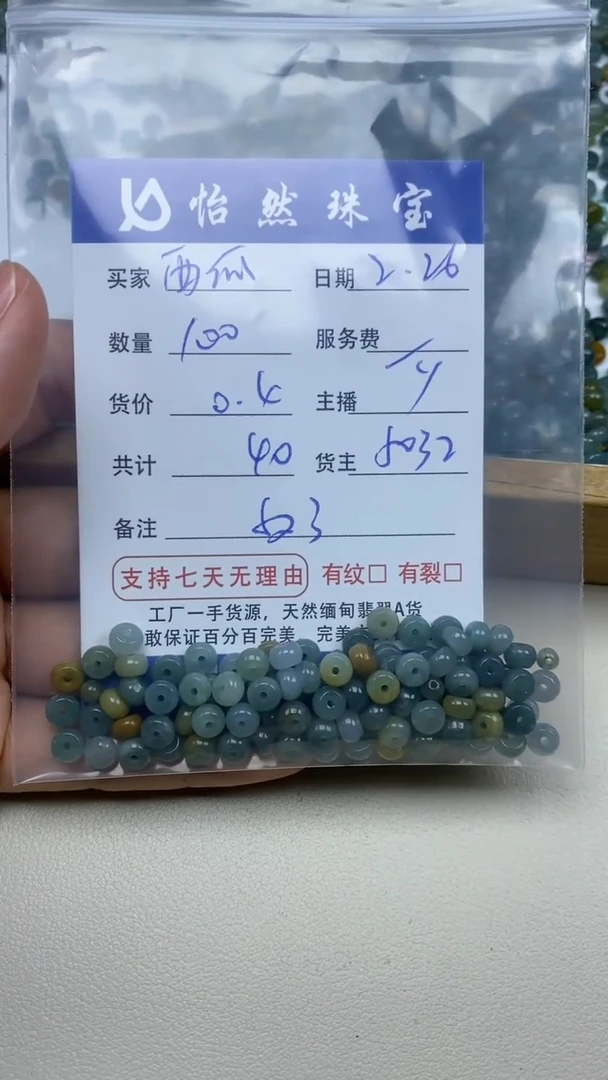 怡然珠宝
买家 西瓜 日期 2.26
数量 100 服务费 /
货价 0.4 主播 y
共计 40 货主 5032
备注
支持七天无理由 有纹□ 有裂□
工厂一手货源，天然缅甸翡翠A货
敢保证百分百完美 完美